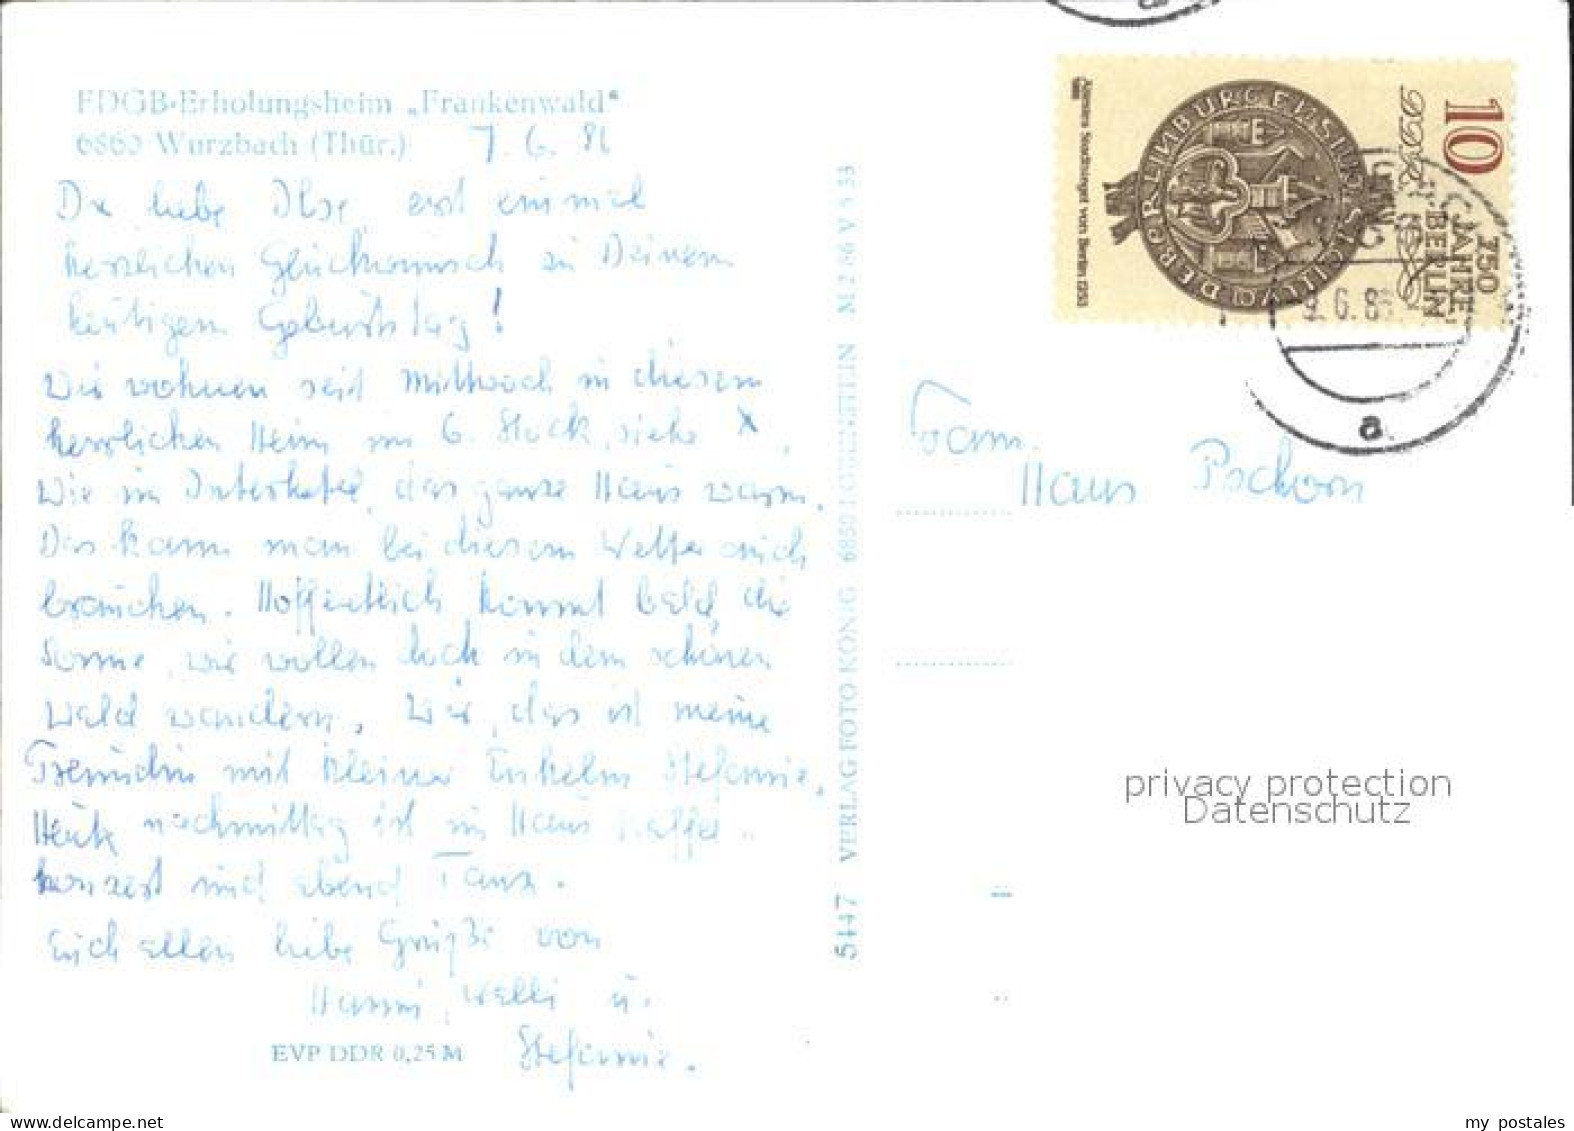 FDGB-Erholungsheim „Frankenwald“
6860 Wurzbach (Thür.) 7. 6. 86
Du liebe Ilse, erst einmal
herzlichen Glückwunsch zu Deinem
heutigem Geburtstag!
Wir wohnen seit Mittwoch in diesem
herrlichen Heim im 6. Stock, siehe X,
wie im Interhotel, das ganze Haus warm.
Das kann man bei diesem Wetter auch
brauchen. Hoffentlich kommt bald die
Sonne, wir wollen doch in dem schönen
Wald wandern. Wir, das ist meine
Freundin mit kleiner Enkelin Stefanie.
Heute nachmittag ist im Haus Kaffee-
konzert und abend Tanz.
Euch allen liebe Grüße von
Hanni, Welli u.
Stefanie.
EVP DDR 0,25 M
5447 VERLAG FOTO KÖNIG 6850 LOBENSTEIN M 2 86 V 5 33
10
DDR
750
JAHRE
BERLIN
Ältestes Stadtsiegel von Berlin 1253
1986
9.6.86
a
Fam.
Haus Pschorn
privacy protection
Datenschutz
my postales